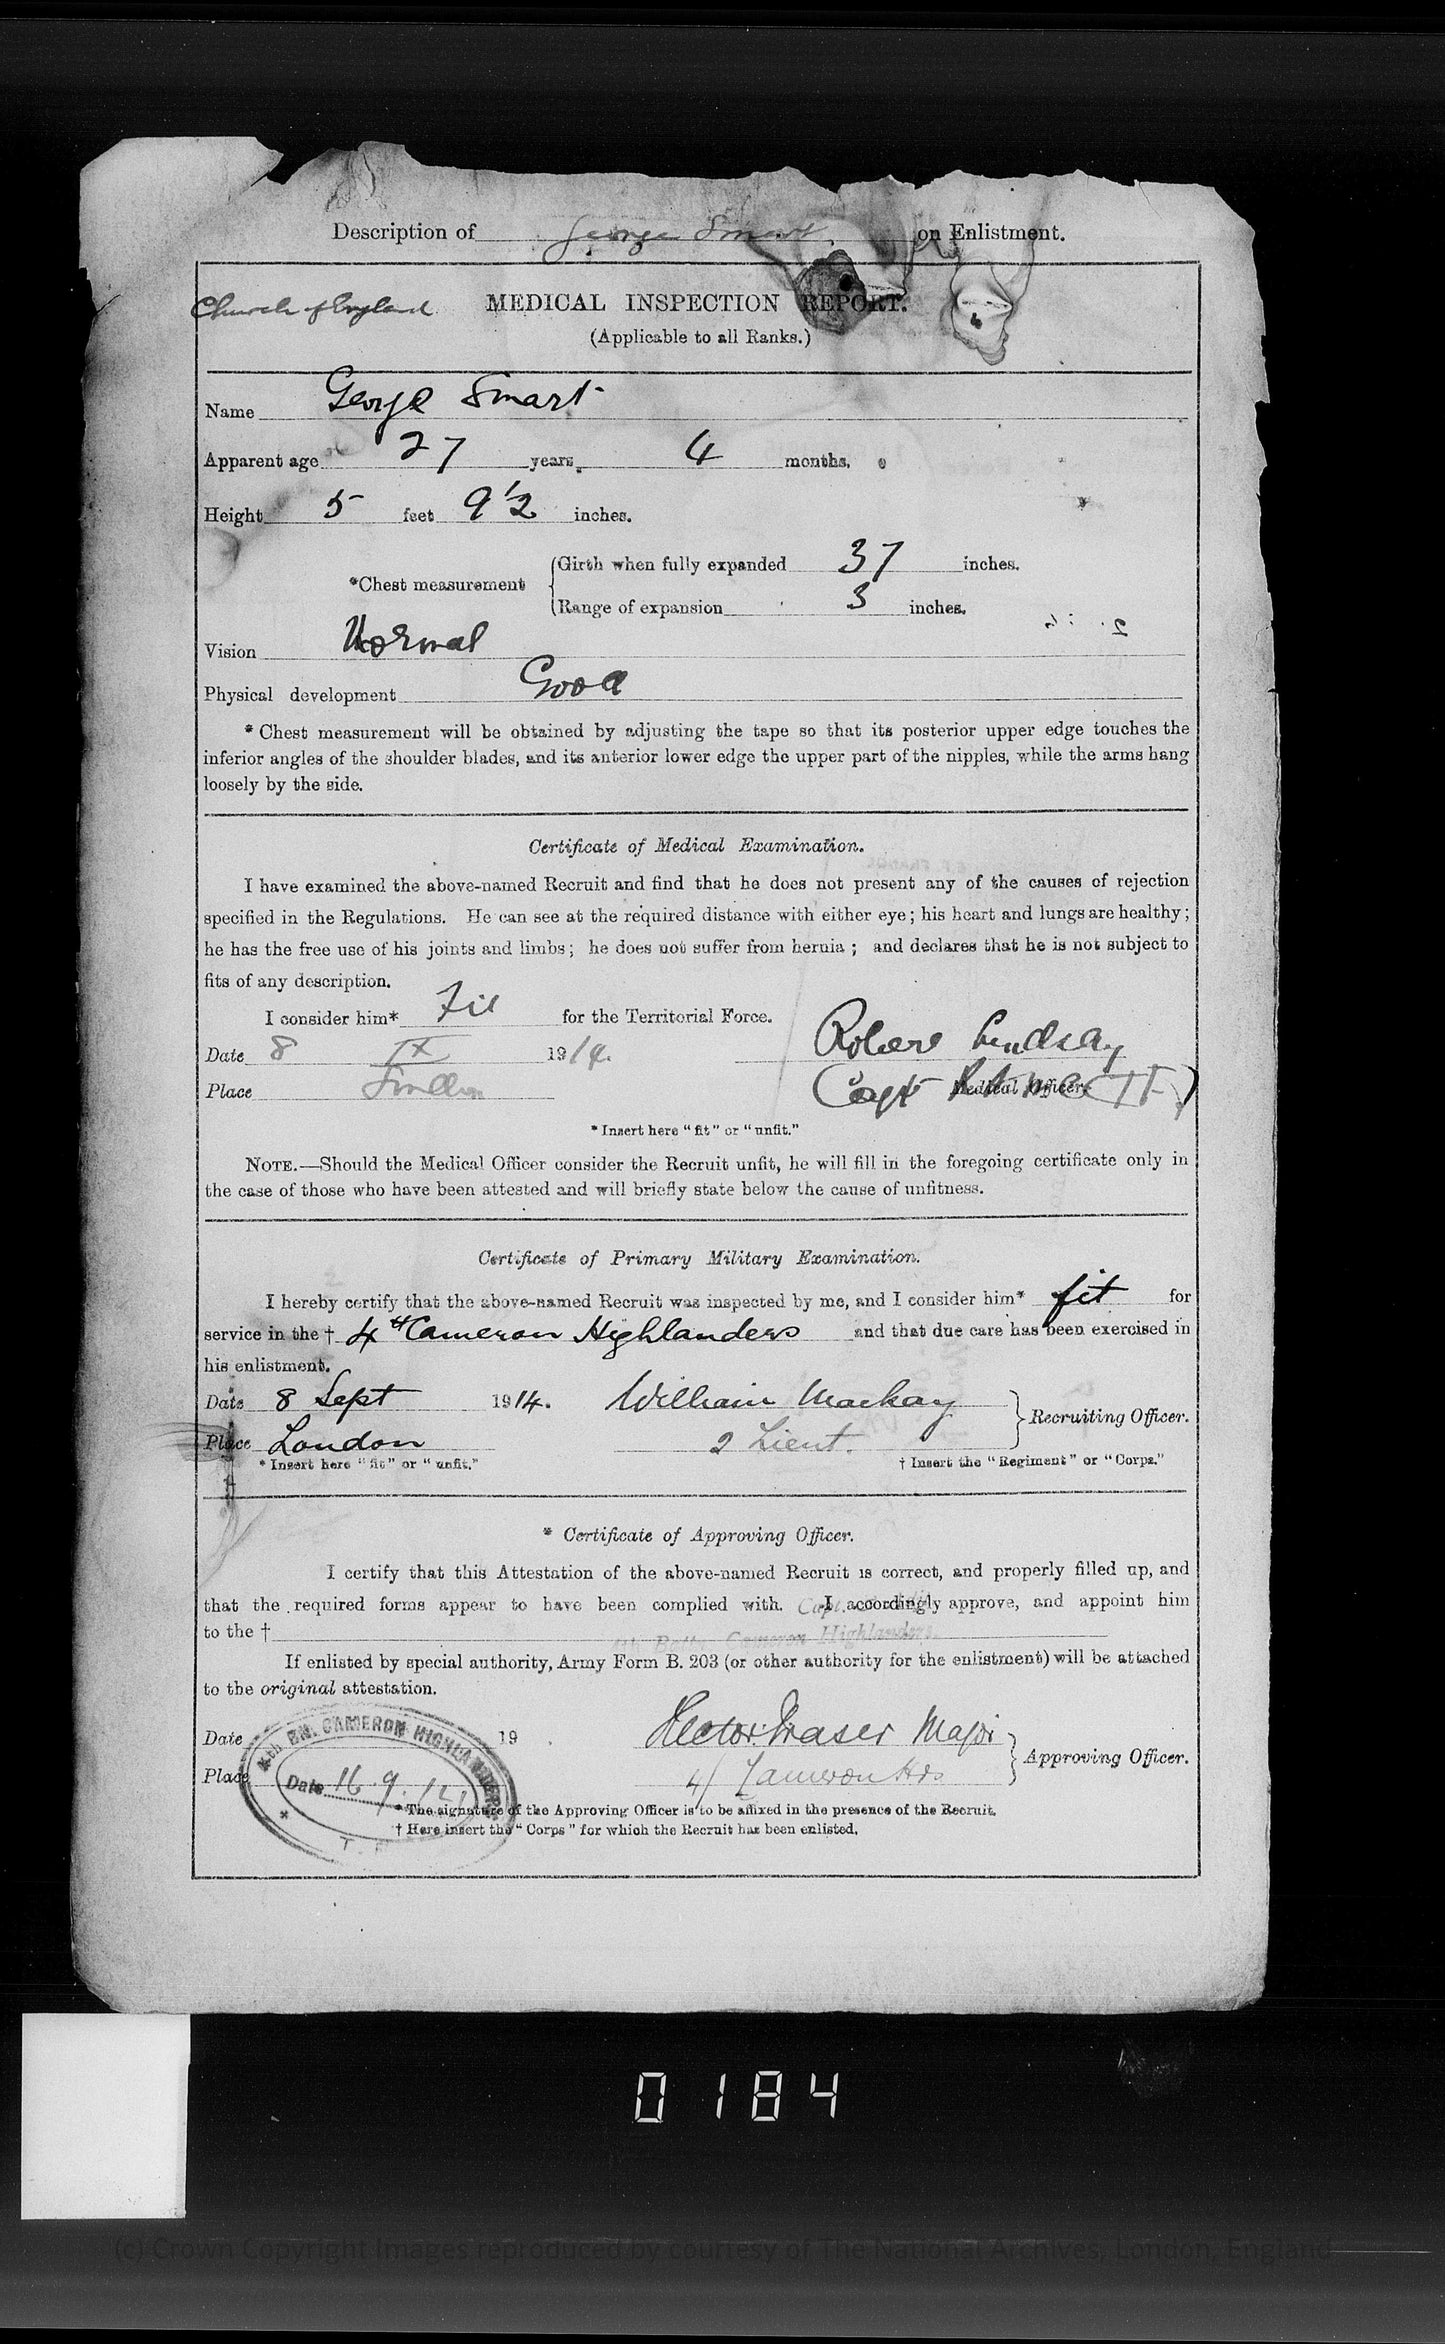 Description of George Smart on Enlistment.
Church of England
MEDICAL INSPECTION REPORT.
(Applicable to all Ranks.)
Name George Smart
Apparent age 27 years 4 months.
Height 5 feet 9 1/2 inches.
*Chest measurement
Girth when fully expanded 37 inches.
Range of expansion 3 inches.
Vision Normal
Physical development Good
* Chest measurement will be obtained by adjusting the tape so that its posterior upper edge touches the
inferior angles of the shoulder blades, and its anterior lower edge the upper part of the nipples, while the arms hang
loosely by the side.
Certificate of Medical Examination.
I have examined the above-named Recruit and find that he does not present any of the causes of rejection
specified in the Regulations. He can see at the required distance with either eye; his heart and lungs are healthy;
he has the free use of his joints and limbs; he does not suffer from hernia; and declares that he is not subject to
fits of any description.
I consider him* Fit for the Territorial Force.
Date 8 IX 1914. Robert Lindsay
Place Capt R.A.M.C. (T.F.) Medical Officer.
* Insert here "fit" or "unfit."
NOTE.—Should the Medical Officer consider the Recruit unfit, he will fill in the foregoing certificate only in
the case of those who have been attested and will briefly state below the cause of unfitness.
Certificate of Primary Military Examination.
I hereby certify that the above-named Recruit was inspected by me, and I consider him* fit for
service in the † 4th Cameron Highlanders and that due care has been exercised in
his enlistment.
Date 8 Sept 1914. William Mackay
Recruiting Officer.
Place London 2 Lieut.
* Insert here "fit" or "unfit." † Insert the "Regiment" or "Corps."
* Certificate of Approving Officer.
I certify that this Attestation of the above-named Recruit is correct, and properly filled up, and
that the required forms appear to have been complied with. I accordingly approve, and appoint him
to the † 4th Battn. Cameron Highlanders.
If enlisted by special authority, Army Form B. 203 (or other authority for the enlistment) will be attached
to the original attestation.
Date 19 Hector Fraser Major
Approving Officer.
Place 4/ Cameron Hrs
4th BN. CAMERON HIGHLANDERS
Date 16.9.14
T. F.
* The signature of the Approving Officer is to be affixed in the presence of the Recruit.
† Here insert the "Corps" for which the Recruit has been enlisted.
0184
(c) Crown Copyright Images reproduced by courtesy of The National Archives, London, England